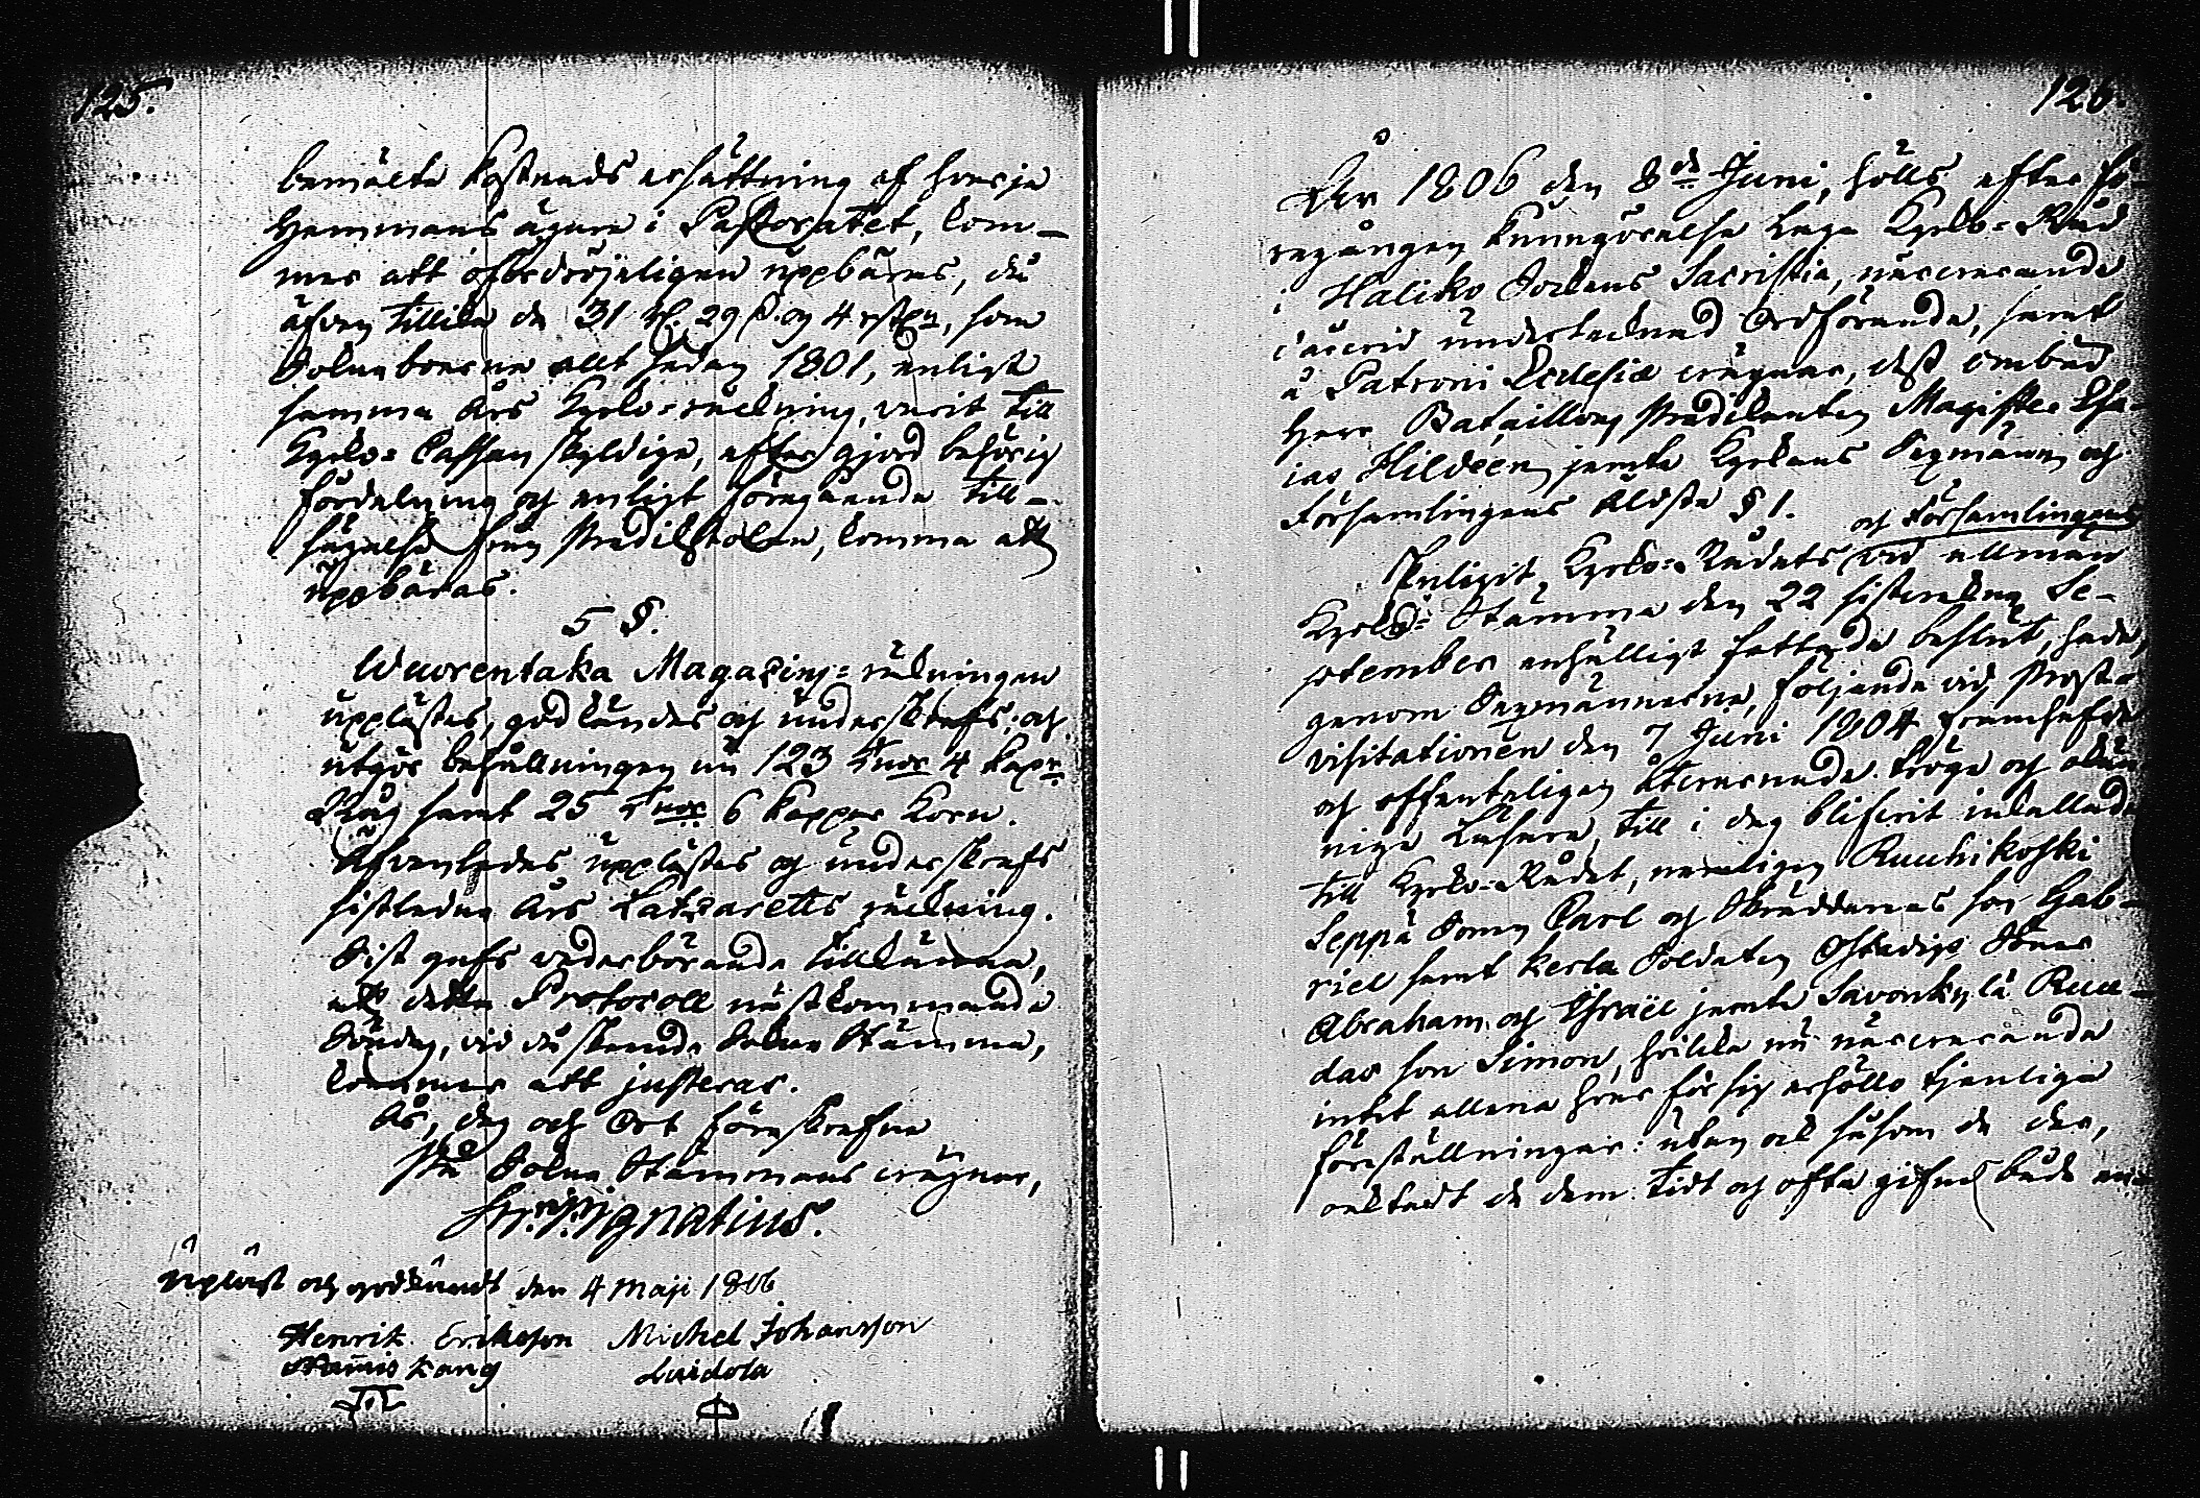 125.
bemälte kostnads ersättning af hvarja
Hemmans ägare i Pastoratet, kom-
mer att ofördröjeligen uppbäras, då
äfven tillika de 31 rd. 29 s. og 4 rst.n, som
Sokneboerne allt sedan 1801, enligt
samma års Kyrko-räkning, varit till
Kyrko-Cassan skyldige, efter gjord behörig
fördelning og enligt föregående till-
sägelse från Predikstolen, komma att
uppbäras.
5 §.
Wuorentaka Magazins-räkningen
upplästes, godkändes og underskrefs; og
utgör behållningen nu 123 T:nor 4 kap:r
Råg samt 25 T:nor 6 kappar Korn.
Äfvenledes upplästes og underskrefs
sistledne års Latzaretts räkning.
Sist gafs vederbörande tillkänna,
att detta Protocoll nästkommande
Söndag, vid då skeende Sokne Stämma,
kommer att justeras.
År, dag och Ort föreskrefne
På Sokne Stämmans vägnar,
Ignatius.
Upläst och godkändt den 4 Maji 1806
Henrik Eriksson Michel Johansson
126.
År 1806 den 8de Juni, hölls efter fö-
regången kungörelse laga Kyrko-Råd
i Haliko Sockens Sacristia, närvarande
därvid undertecknad Ordförande, samt
å Patroni Ecclesiæ vägnar, dess ombud
Herr Bataillons Predikanten Magister Esa-
ias Hildeen jemte Kyrkans Sexmän og
Församlingens Äldste § 1.
og Församlingens
Enligit Kyrko-Rådets vid allmän
Kyrko-Stämma den 22 sistvekne Se-
ptember enhälligt fattade beslut, hade,
genom Sexmännerne, följande vid Prost-
visitationen den 7 Juni 1804 framhafde
og offenteligen åtvarnade tröga og okun-
nige Läsare, till i dag blifvit inkallade
till Kyrko-Rådet, nemligen Ruuhikoski
Seppä Sonen Carl og Skräddarnes son Gab-
riel samt Kerla Soldaten Ostadigs Söner
Abraham og Israël jemte Savonkylä Ruu-
das son Simon, hvilka nu närvarande
intet allena hvar för sig erhöllo tjenliga
föreställningar: utan ock såsom de der,
oaktadt de dem tidt og ofta gifne både en-